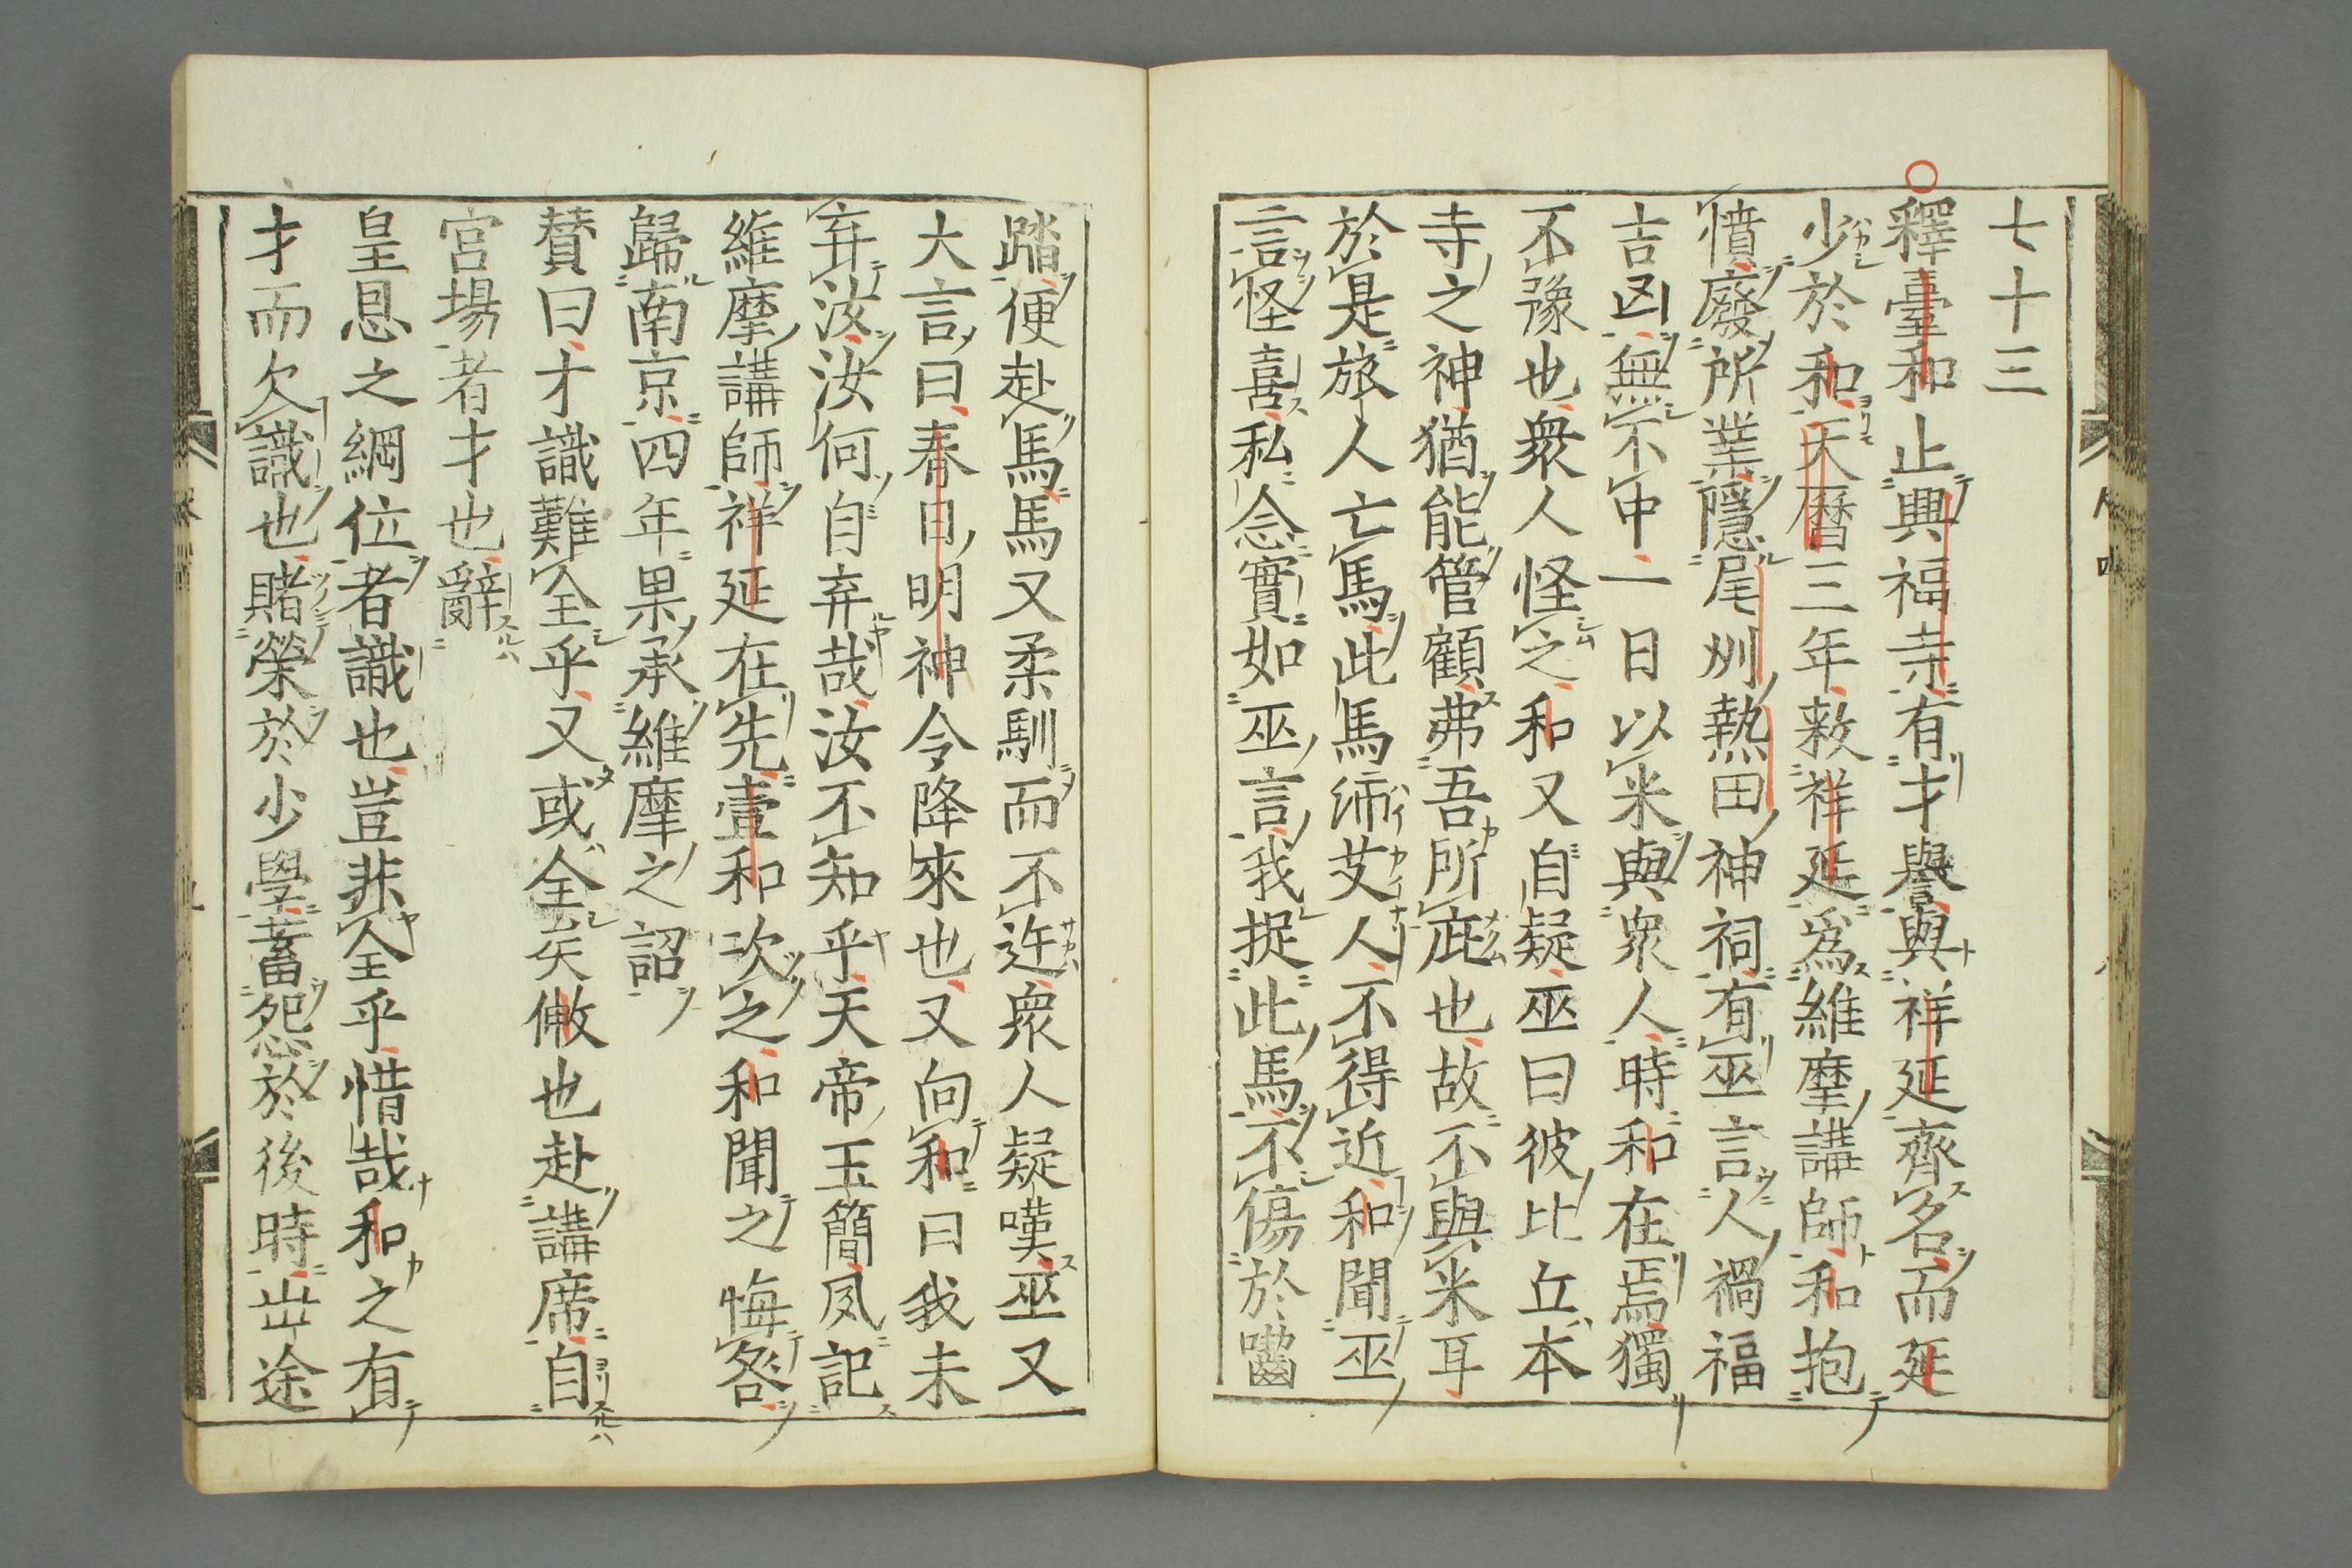 七十三
釋臺和止興福寺有才譽與祥延齊名而延
少於和天曆三年敕祥延爲維摩講師和抱
憤廢所業隱尾州熱田神祠有巫言人禍福
吉凶無不中一日以米與衆人時和在焉獨
不豫也衆人怪之和又自疑巫曰彼比丘本
寺之神猶能管顧弗吾所庇也故不與米耳
於是旅人亡馬此馬啼艾人不得近和聞巫
言怪喜私念實如巫言我捉此馬不傷於嚙
踏便赴馬馬又柔馴而不迕衆人疑嘆巫又
大言曰春日明神令降來也又向和曰我未
弃汝汝何自弃哉汝不知乎天帝玉簡夙記
維摩講師祥延在先壹和次之和聞之悔咎
歸南京四年果承維摩之詔
賛曰才識難全乎又或全矣儆也赴講席自
宮場者才也辭
皇恩之綱位者識也豈非全乎惜哉和之有
才而欠識也賭榮於少學蓄怨於後時岀途